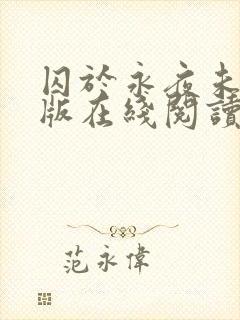 囚於永夜未
版在綫閱讀
范永偉